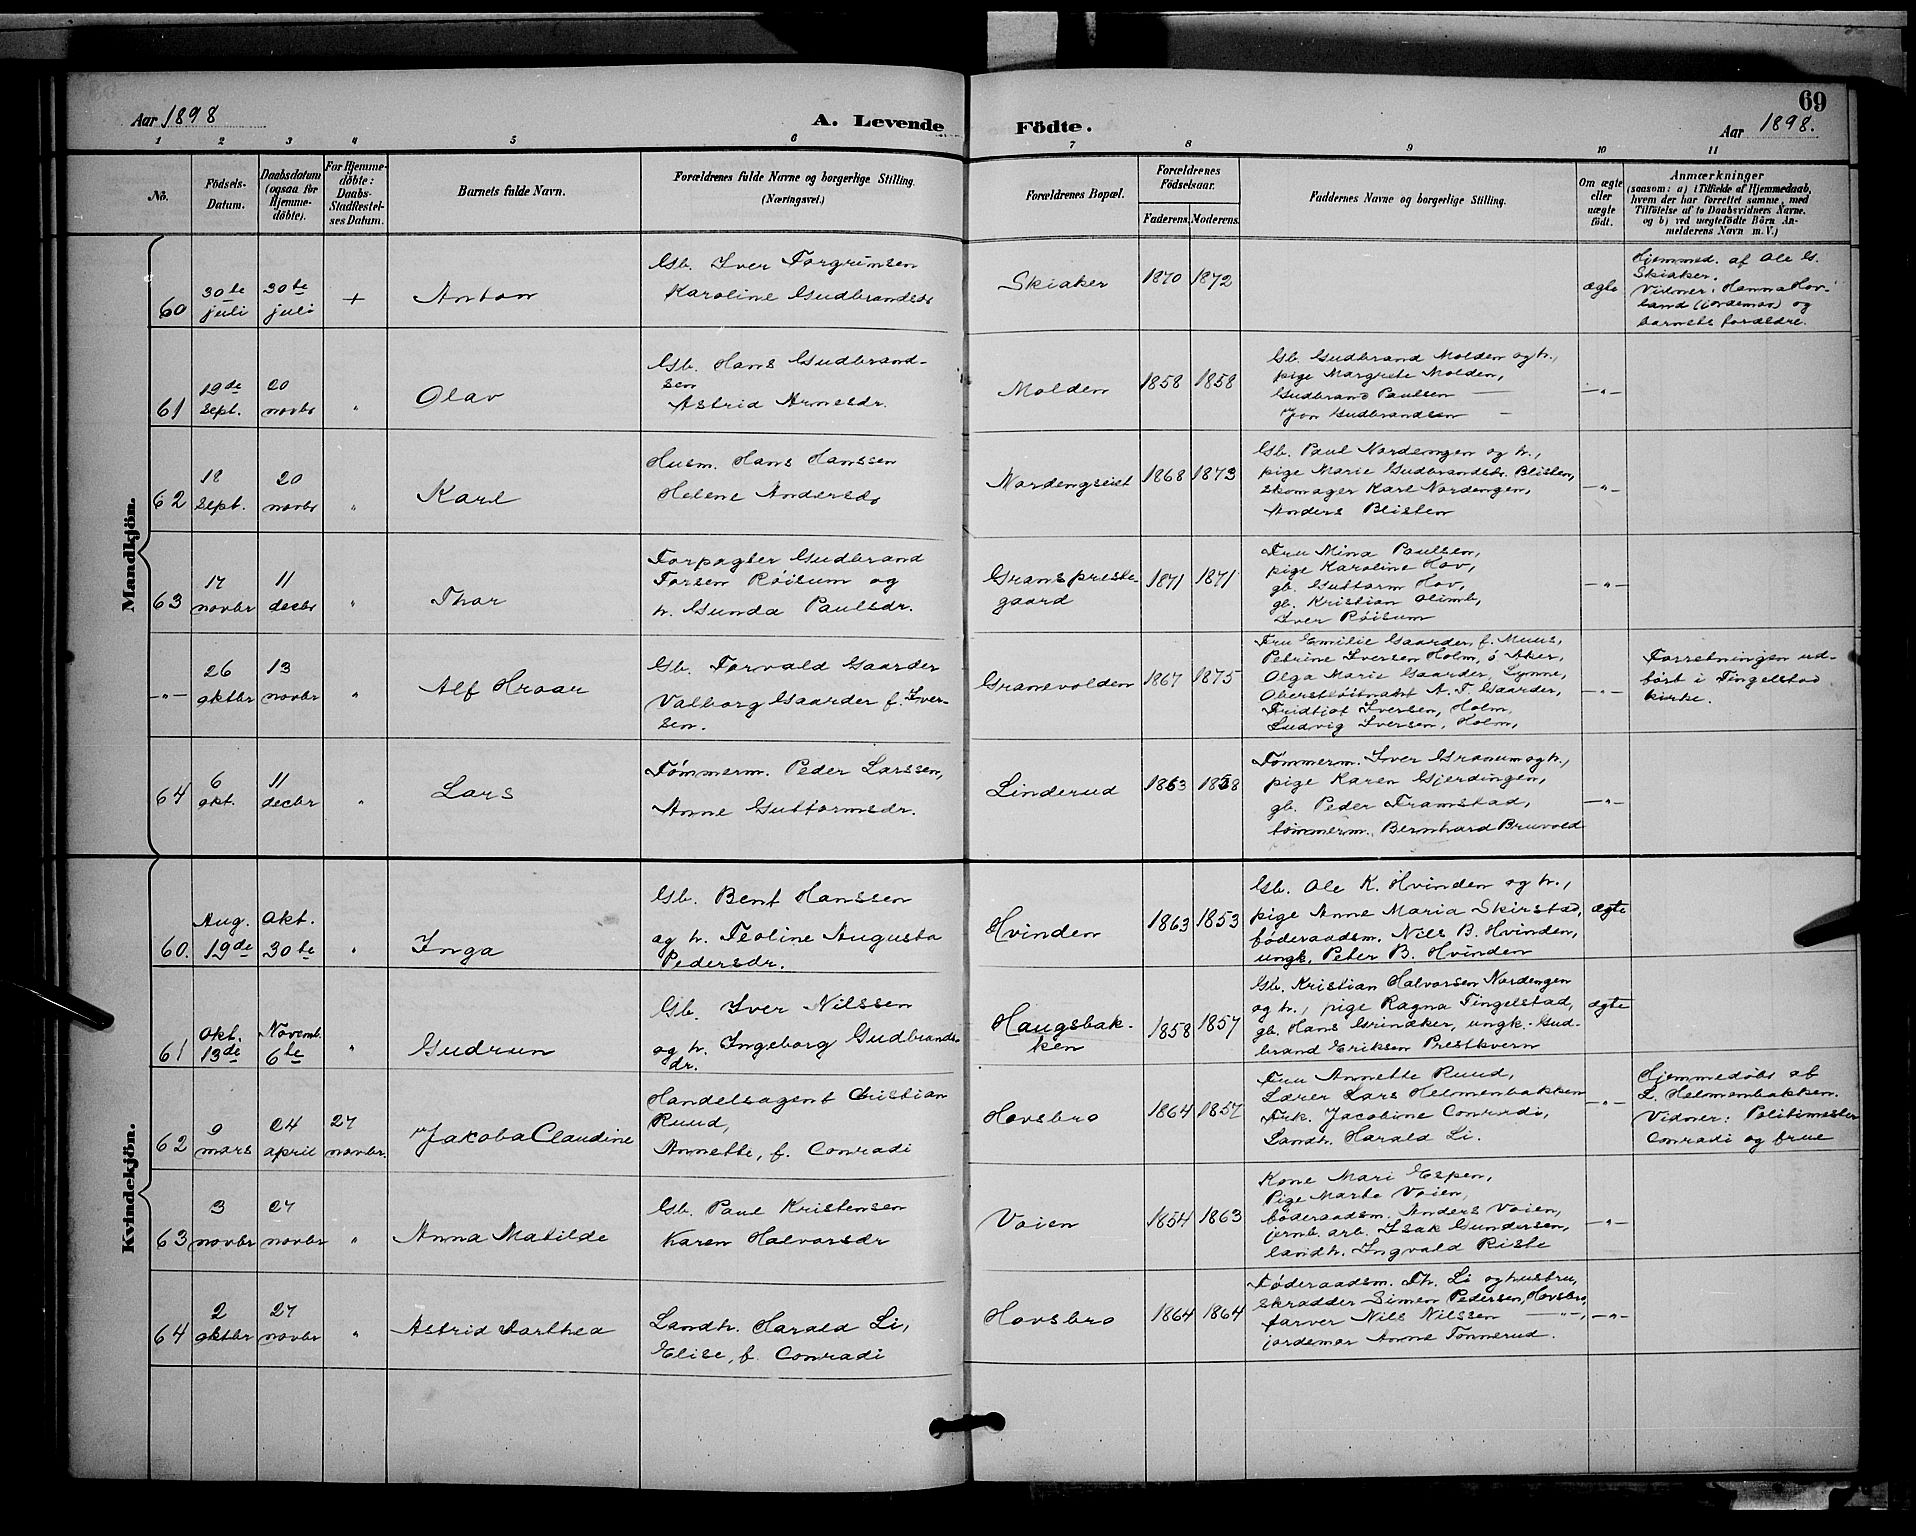 69
Aar 1898
A. Levende
Födte.
Aar 1898.
1 2 3 4 5 6 7 8 9 10 11
No.
Födsels-
Datum.
Daabsdatum
(ogsaa for
Hjemme-
döbte).
For Hjemme-
döbte:
Daabs-
Stadfæstel-
ses Datum.
Barnets fulde Navn.
Forældrenes fulde Navne og borgerlige Stilling.
(Næringsvei.)
Forældrenes Bopæl.
Forældrenes
Födselsaar.
Faderens. Moderens.
Faddernes Navne og borgerlige Stilling.
Om ægte
eller
uægte
födt.
Anmærkninger
(saasom: a) i Tilfælde af Hjemmedaab,
hvem der har forrettet samme, med
Tilföielse af to Daabsvidners Navne.
og b) ved uægtefödte Börn An-
melderens Navn m. V.)
Mandkjön.
60
30te
juli
30te
juli
+
Anton
Gb. Iver Torgrimsen
Karoline Gudbrandsdr
Skiaker
1870 1872
ægte
Hjemmed. af Ole G.
Skiaker.
Vidner: Hanna Hov-
land (jordemor) og
barnets forældre.
61
19de
sept.
20
novbr
"
Olav
Gb. Hans Gudbrand-
sen
Astrid Arnesdr.
Molden
1858 1858
Gb. Gudbrand Molden og h.,
pige Margrete Molden,
Gudbrand Paulsen —
Jon Gudbrandsen —
—"—
62
18
sept.
20
novbr
"
Karl
Husm. Hans Hanssen
Helene Andersdr
Nordengseiet
1868 1873
Gb. Paul Nordengen og h.,
pige Marie Gudbrandsdr. Blisten,
skomager Karl Nordengen,
Anders Blisten
—"—
63
17
novbr
11
decbr
"
Thor
Forpagter Gudbrand
Torsen Röisum og
h. Gunda Paulsdr.
Grans preste-
gaard
1871 1871
Fru Mina Paulsen,
pige Karoline Hov,
gb. Guttorm Hov,
gb. Kristian Alimb,
Iver Röisum
—"—
—"—
26
oktbr
13
novbr
"
Alf Hroar
Gb. Torvald Gaarder
Valborg Gaarder f. Iver-
sen.
Granevolden
1867 1875
Fru Emilie Gaarder, f. Muus,
Petrine Iversen Holm, ö Aker,
Olga Marie Gaarder, Lynne,
Oberstlöitnant A. T. Gaarder,
Fridtjof Iversen, Holm,
Ludvig Iversen, Holm,
—"—
Forretningen ud-
fört i Tingelstad
kirke.
64
6
okt.
11
decbr
"
Lars
Tömmerm. Peder Larssen,
Anne Guttormsdr.
Linderud
1863 1858
Tömmerm. Iver Granum og h.,
pige Karen Gjerdingen,
gb. Peder Framstad,
tömmerm. Bernhard Bruvold
—"—
Kvindekjön.
60.
Aug.
19de
Okt.
30te
"
Inga
Gb. Bent Hanssen
og h. Teoline Augusta
Pedersdr.
Hvinden
1863 1853
Gb. Ole K. Hvinden og h.,
pige Anne Maria Skirstad,
föderaadsm. Nils B. Hvinden,
ungk. Peter B. Hvinden
ægte
61
Okt.
13de
Novemb.
6te
"
Gudrun
Gb. Iver Nilssen
og h. Ingeborg Gudbrands-
dr.
Haugsbak-
ken
1858 1857
Gb. Kristian Halvorsen Nordengen
og h., pige Ragna Tingelstad,
gb. Hans Grinaker, ungk. Gud-
brand Eriksen Prestkvern
ægte
62
9
mars
24
april
27
novbr.
Jakoba Claudine
Handelsagent Christian
Ruud,
Annette, f. Conradi
Hovsbro
1864 1857
Fru Annette Ruud,
Lærer Lars Helmenbakken
Frk. Jacobine Conradi,
Landh. Harald Li.
—"—
Hjemmedöbt af
L. Helmenbakken.
Vidner: Politimester
Conradi og frue
63
3
novbr
27
novbr
"
Anna Matilde
Gb. Paul Kristensen
Karen Halvorsdr
Voien
1854 1863
Kone Mari Espen,
Pige Marte Voien,
föderaadsm. Anders Voien,
jernb. arb. Isak Gundersen,
landh. Ingvald Riste
—"—
64
2
oktbr
27
novbr
"
Astrid Dorthea
Landh. Harald Li,
Elise, f. Conradi
Hovsbro
1864 1864
Föderaadsm. Th. Li og hustru,
skrædder Simen Pedersen, Hovsbro,
farver Nils Nilssen —"—,
jordemor Anne Tonnerud.
—"—